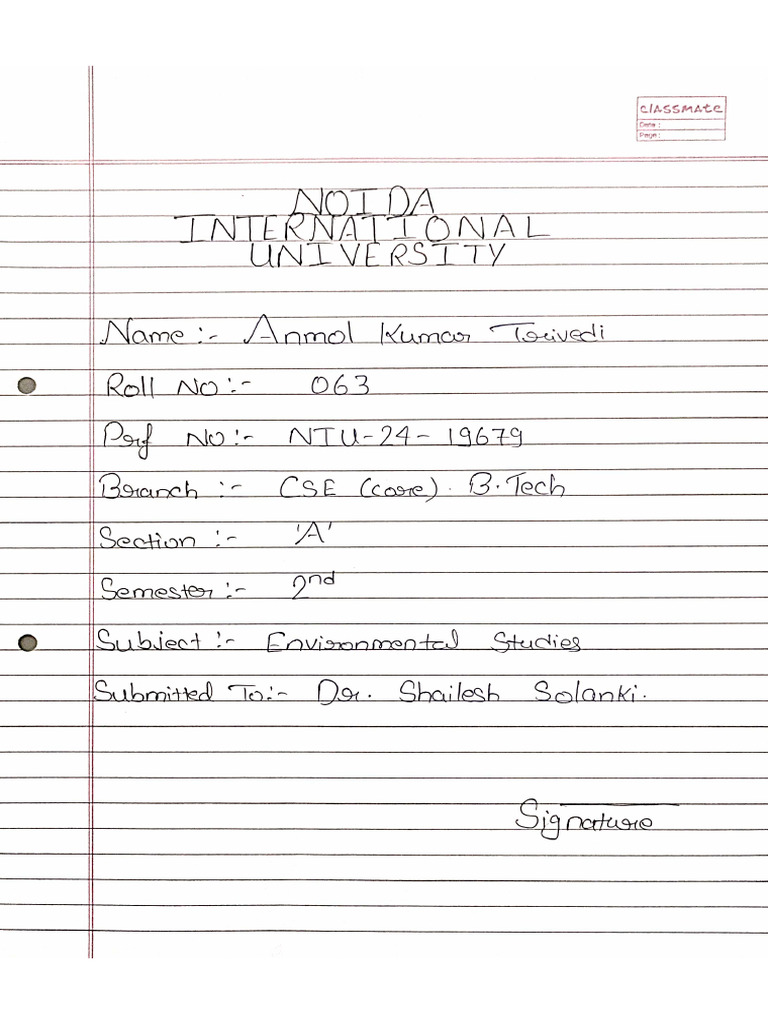 classmate
Date :
Page :
NOIDA
INTERNATIONAL
UNIVERSITY
Name :- Anmol Kumar Trivedi
Roll No :- 063
Prf No :- NIU-24-19679
Branch :- CSE (core). B.Tech
Section :- 'A'
Semester :- 2nd
Subject :- Environmental Studies
Submitted To :- Dr. Shailesh Solanki.
Signature